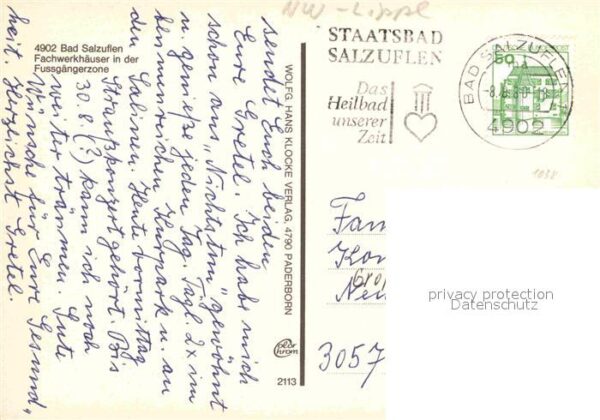 NW-Lippe
4902 Bad Salzuflen
Fachwerkhäuser in der
Fussgängerzone
sendet Euch beiden
Eure Gretel. Ich habe mich
schon ans „Nichtstun" gewöhnt
u. genieße jeden Tag. Tägl. 2x im
blumenreichen Kurpark u. an
den Salinen. Heute vormittag
Straußkonzert gehört. Bis
30.8 (?) kann ich noch
weiter träumen. Gute
Wünsche für Eure Gesund„
heit. Herzlichst Gretel.
WOLFG. HANS KLOCKE VERLAG, 4790 PADERBORN
color
chrom
2113
STAATSBAD
SALZUFLEN
Das
Heilbad
unserer
Zeit
BAD SALZUFLEN 1
4902
50
1038
Fam
3057
privacy protection
Datenschutz